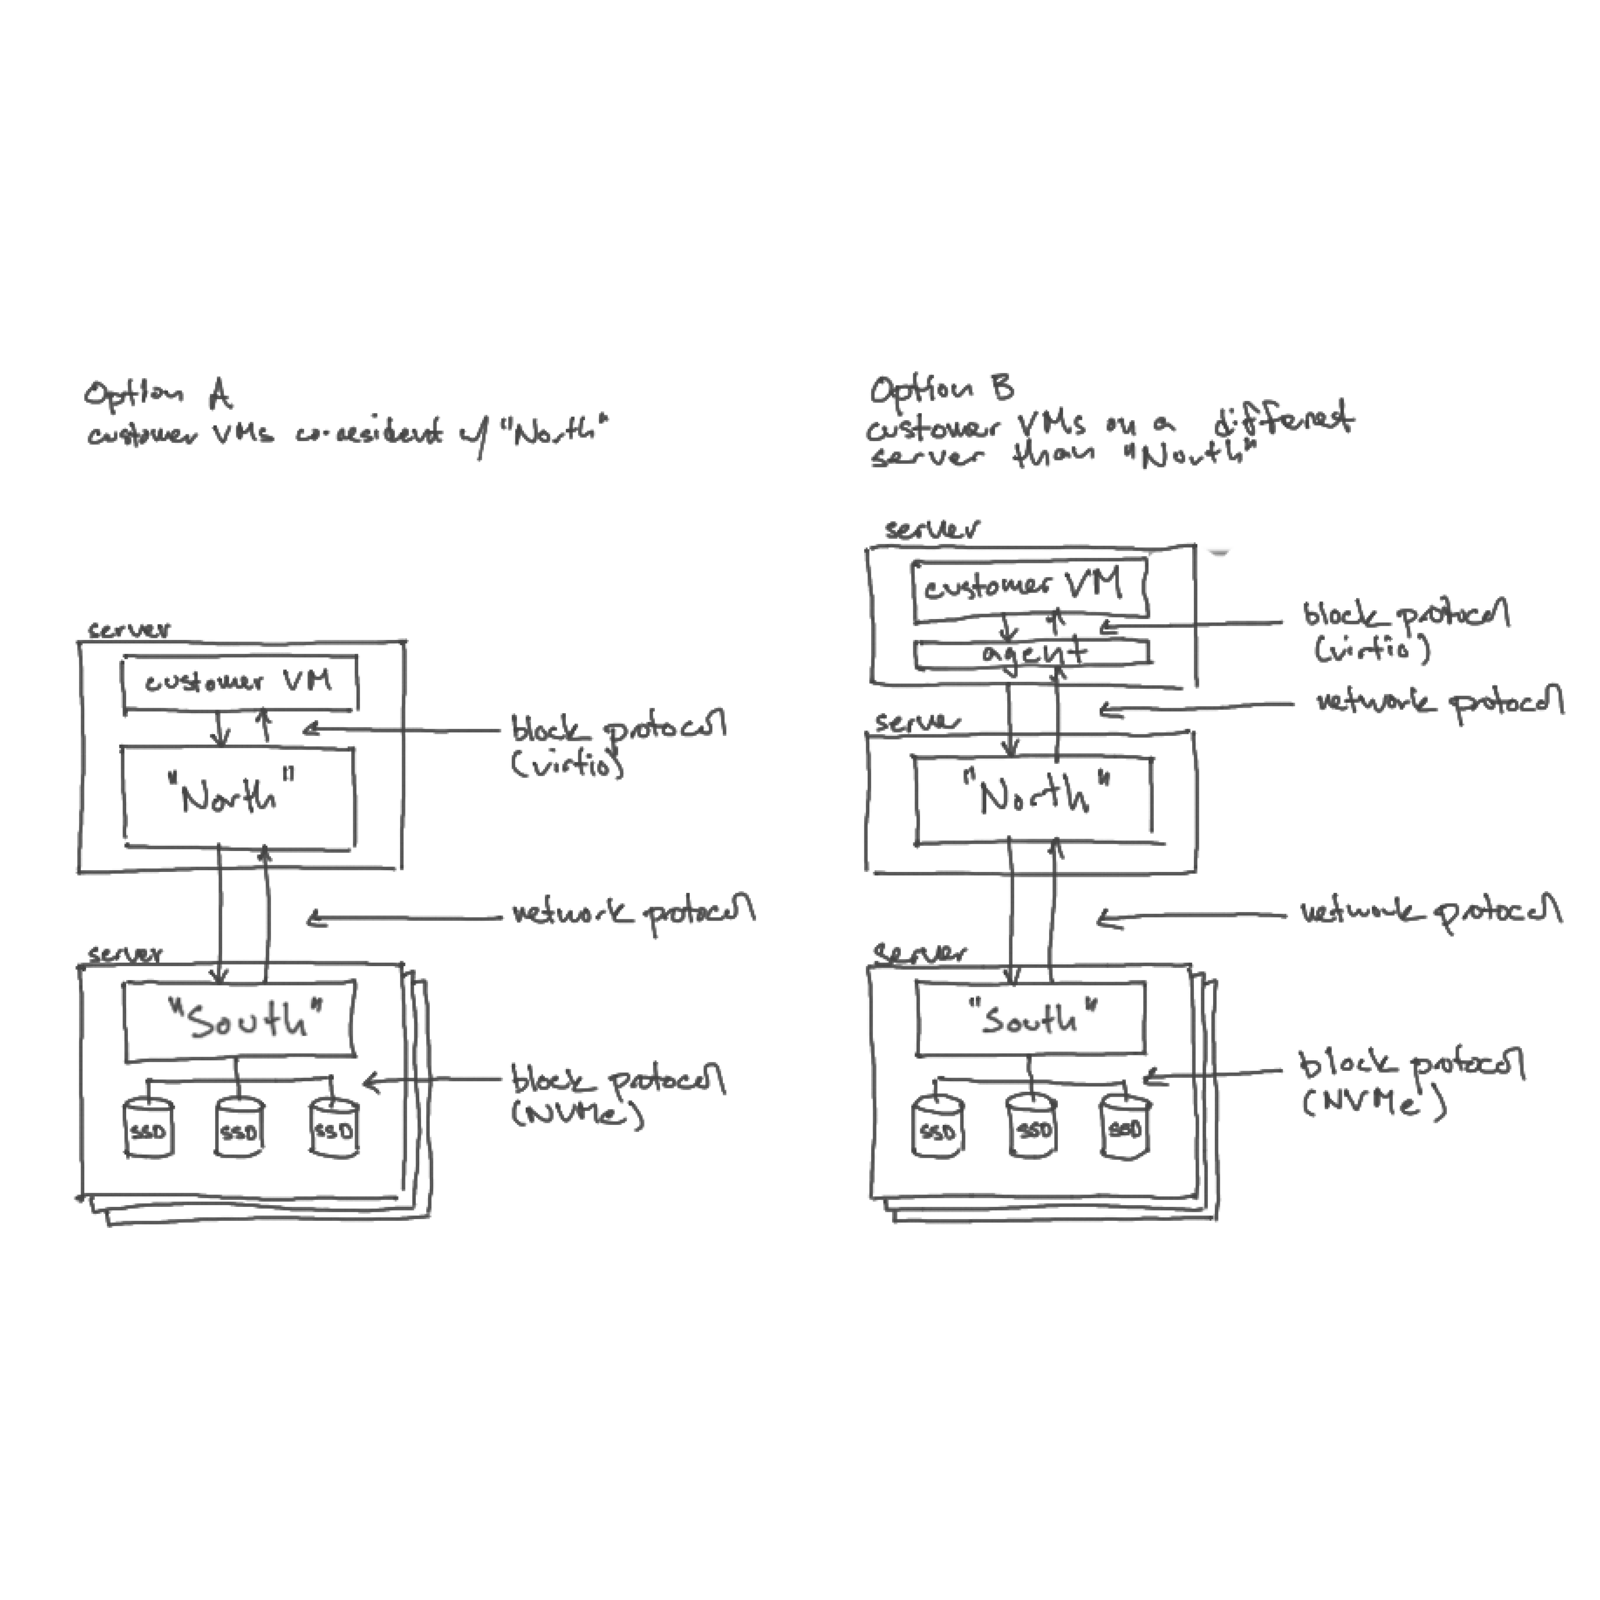 Option A
customer VMs co-resident w/ "North"
server
customer VM
block protocol
(virtio)
"North"
network protocol
server
"South"
block protocol
(NVMe)
SSD SSD SSD
Option B
customer VMs on a different
server than "North"
server
customer VM
block protocol
(virtio)
agent
network protocol
server
"North"
network protocol
server
"South"
block protocol
(NVMe)
SSD SSD SSD